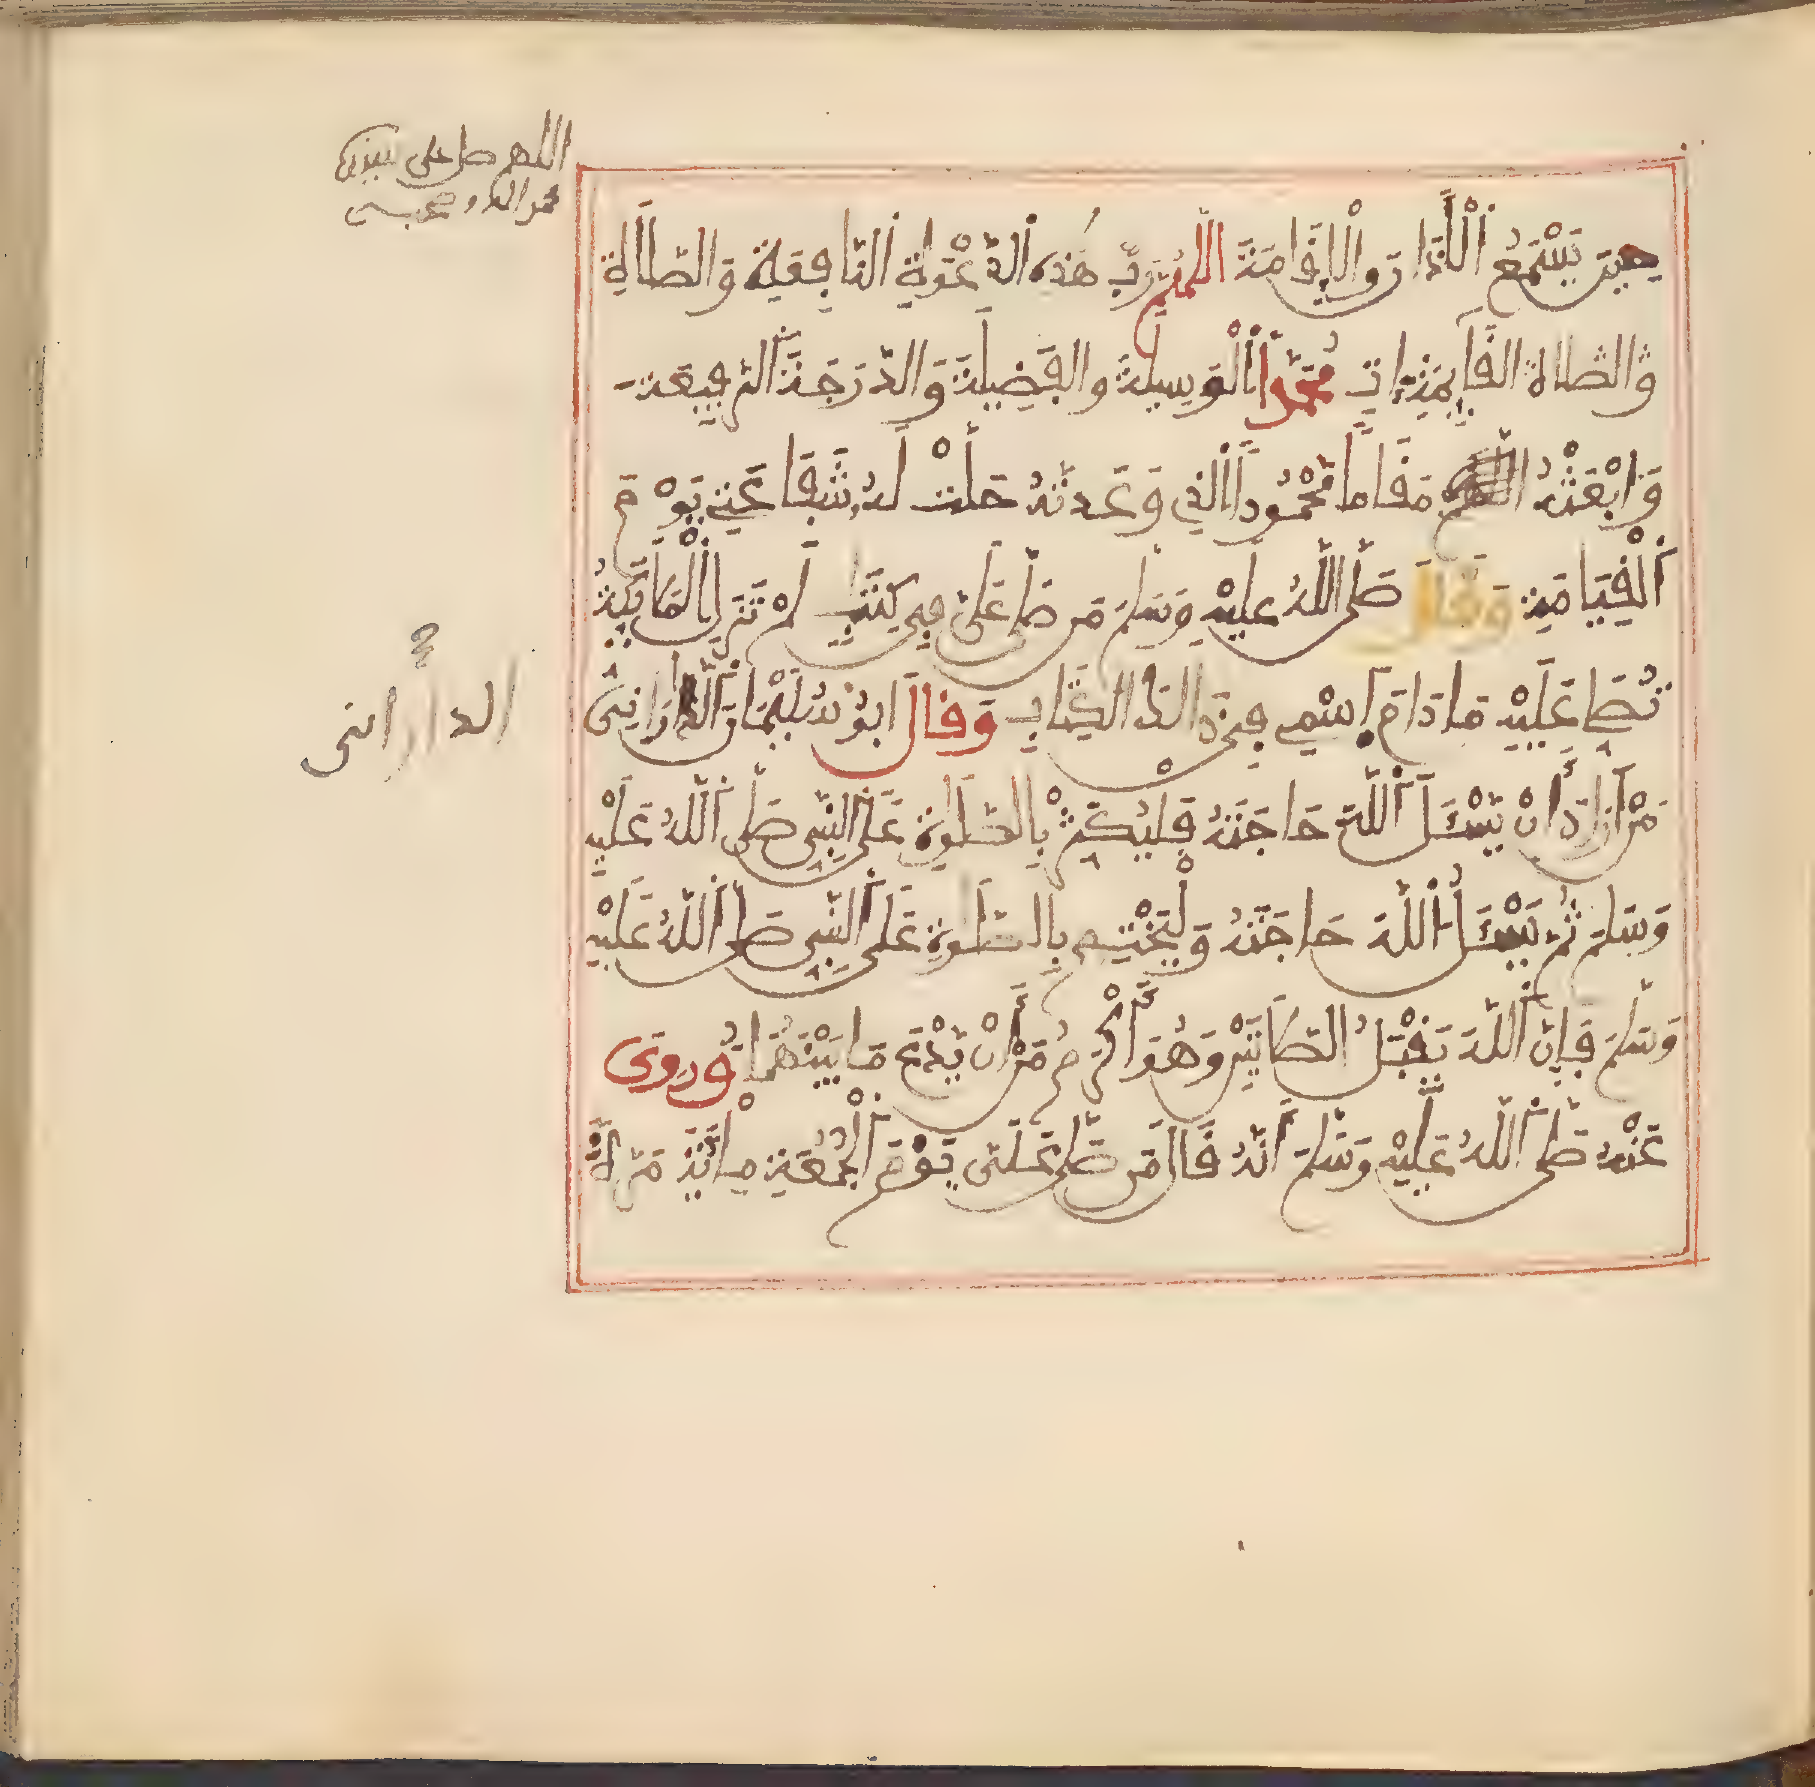 اللهم صل على سيدنا
محمد واله وصحبه
حِينَ يَسْمَعُ اَلَاذَانَ وَالْاِقَامَةَ اَللَّهُمَّ رَبَّ هَذِهِ اَلدَّعْوَةِ اَلنَّافِعَةِ وَالصَّلَاةِ
وَالصَّلَاةِ اَلْقَائِمَةِ اتِ مُحَمَّدًا اَلْوَسِيلَةَ وَالْفَضِيلَةَ وَالدَّرَجَةَ اَلرَّفِيعَةَ
وَابْعَثْهُ اللهم مَقَامًا مَحْمُودًا اَلَّذِي وَعَدتَّهُ حَلَّتْ لَهُ شَفَاعَتِي يَوْمَ
اَلْقِيَامَةِ وَقَالَ صَلَّى اَللَّهُ عَلَيْهِ وَسَلَّمَ مَن صَلَّى عَلَيَّ فِي كِتَابٍ لَمْ تَزَلِ اِلْمَلَائِكَةُ
تُصَلِّي عَلَيْهِ مَا دَامَ اَسْمِي فِي ذَالِكَ اَلْكِتَابِ وَقَالَ اَبُو سُلَيْمَانَ اَلدَّارَانِيُّ
الداراني
مَنْ اَرَادَ اَنْ يَسْئَلَ اَللَّهَ حَاجَتَهُ فَلْيُكْثِرْ بِالصَّلَوٰةِ عَلَى اَلنَّبِيِّ صَلَّى اَللَّهُ عَلَيْهِ
وَسَلَّمَ ثُمَّ يَسْئَلُ اَللَّهَ حَاجَتَهُ وَلْيَخْتِمْ بِالصَّلَوٰةِ عَلَى اَلنَّبِيِّ صَلَّى اَللَّهُ عَلَيْهِ
وَسَلَّمَ فَإِنَّ اَللَّهَ يَقْبَلُ اَلصَّلَاتَيْنِ وَهُوَ أَكْرَمُ مِنْ أَنْ يَدَعَ مَا بَيْنَهُمَا وَرُوِيَ
عَنْهُ صَلَّى اَللَّهُ عَلَيْهِ وَسَلَّمَ أَنَّهُ قَالَ مَن صَلَّى عَلَيَّ يَوْمَ اَلْجُمُعَةِ مِائَةَ مَرَّةٍ